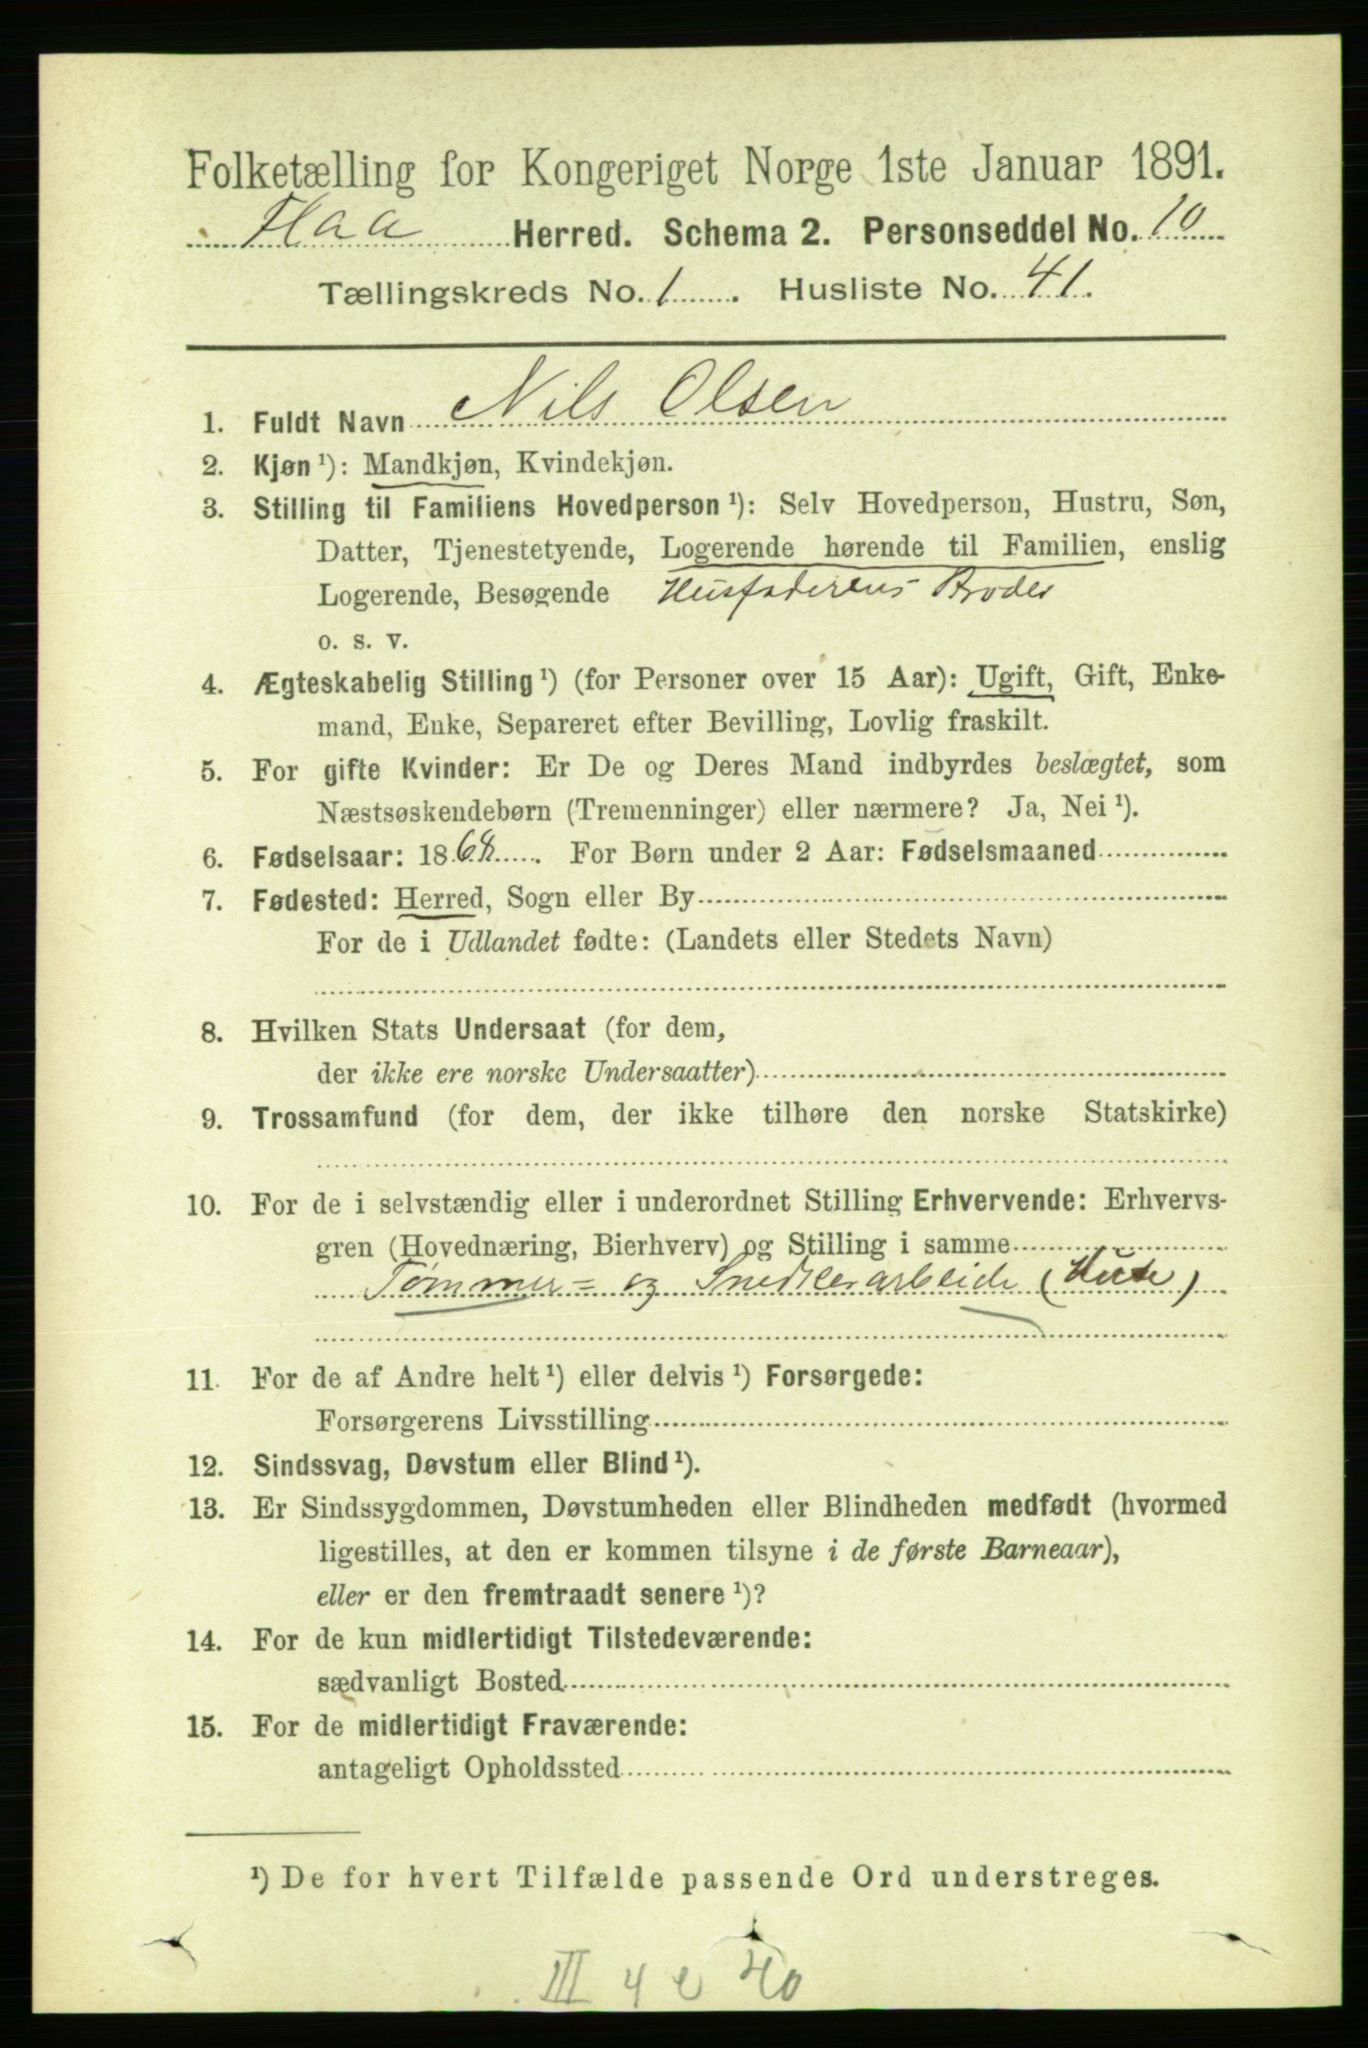 Folketælling for Kongeriget Norge 1ste Januar 1891.
Flaa Herred. Schema 2. Personseddel No. 10
Tællingskreds No. 1. Husliste No. 41.
1. Fuldt Navn Nils Olsen
2. Kjøn ¹): Mandkjøn, Kvindekjøn.
3. Stilling til Familiens Hovedperson ¹): Selv Hovedperson, Hustru, Søn,
Datter, Tjenestetyende, Logerende hørende til Familien, enslig
Logerende, Besøgende Husfaderens Broder
o. s. v.
4. Ægteskabelig Stilling ¹) (for Personer over 15 Aar): Ugift, Gift, Enke-
mand, Enke, Separeret efter Bevilling, Lovlig fraskilt.
5. For gifte Kvinder: Er De og Deres Mand indbyrdes beslægtet, som
Næstsøskendebørn (Tremenninger) eller nærmere? Ja, Nei ¹).
6. Fødselsaar: 1868. For Børn under 2 Aar: Fødselsmaaned
7. Fødested: Herred, Sogn eller By
For de i Udlandet fødte: (Landets eller Stedets Navn)
8. Hvilken Stats Undersaat (for dem,
der ikke ere norske Undersaatter)
9. Trossamfund (for dem, der ikke tilhøre den norske Statskirke)
10. For de i selvstændig eller i underordnet Stilling Erhvervende: Erhvervs-
gren (Hovednæring, Bierhverv) og Stilling i samme
Tømmer- og Snedkerarbeide
11. For de af Andre helt ¹) eller delvis ¹) Forsørgede:
Forsørgerens Livsstilling
12. Sindssvag, Døvstum eller Blind ¹).
13. Er Sindssygdommen, Døvstumheden eller Blindheden medfødt (hvormed
ligestilles, at den er kommen tilsyne i de første Barneaar),
eller er den fremtraadt senere ¹)?
14. For de kun midlertidigt Tilstedeværende:
sædvanligt Bosted
15. For de midlertidigt Fraværende:
antageligt Opholdssted
¹) De for hvert Tilfælde passende Ord understreges.
III 4 e 40